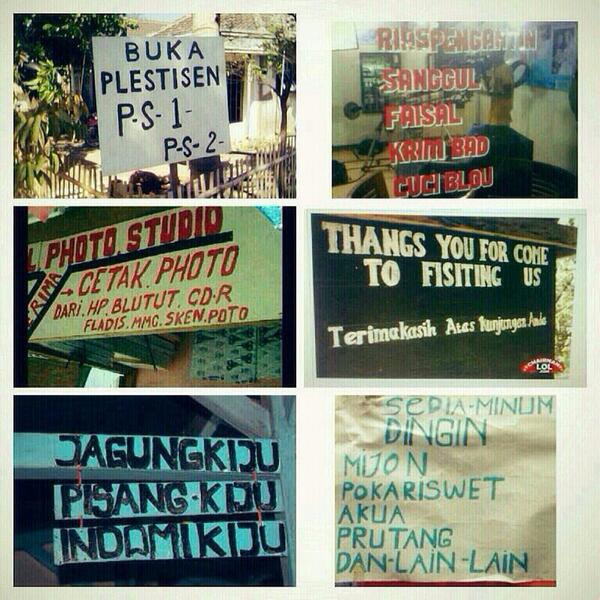 BUKA
PLESTISEN
P-S-1-
P-S-2-
RIASPENGANTIN
SANGGUL
FAISAL
KRIM BAD
CUCI BLOU
L. PHOTO STUDIO
ERIMA → CETAK. PHOTO
DARI. HP. BLUTUT. CD-R
FLADIS. MMG. SKEN. POTO
THANGS YOU FOR COME
TO FISITING US
Terimakasih Atas Kunjungan Anda
LOL
JAGUNGKIJU
PISANG-KIJU
INDOMIKIJU
SEDIA-MINUM
DINGIN
MIJON
POKARISWET
AKUA
PRUTANG
DAN-LAIN-LAIN